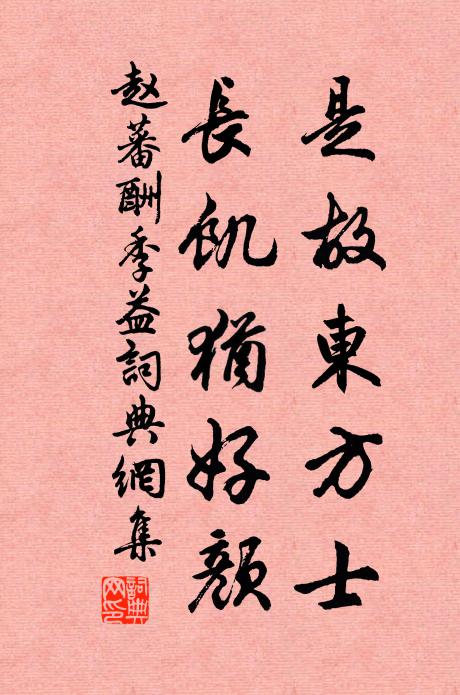 是故東方士
長飢猶好顏
赵蕃酬季益詞典網集
詞典网印